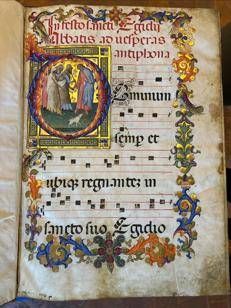 In festo sancti Egidii
Abbatis ad vesperas
antiphona
Omnium
semp et
ubiqz regnantez in
sancto suo Egidio